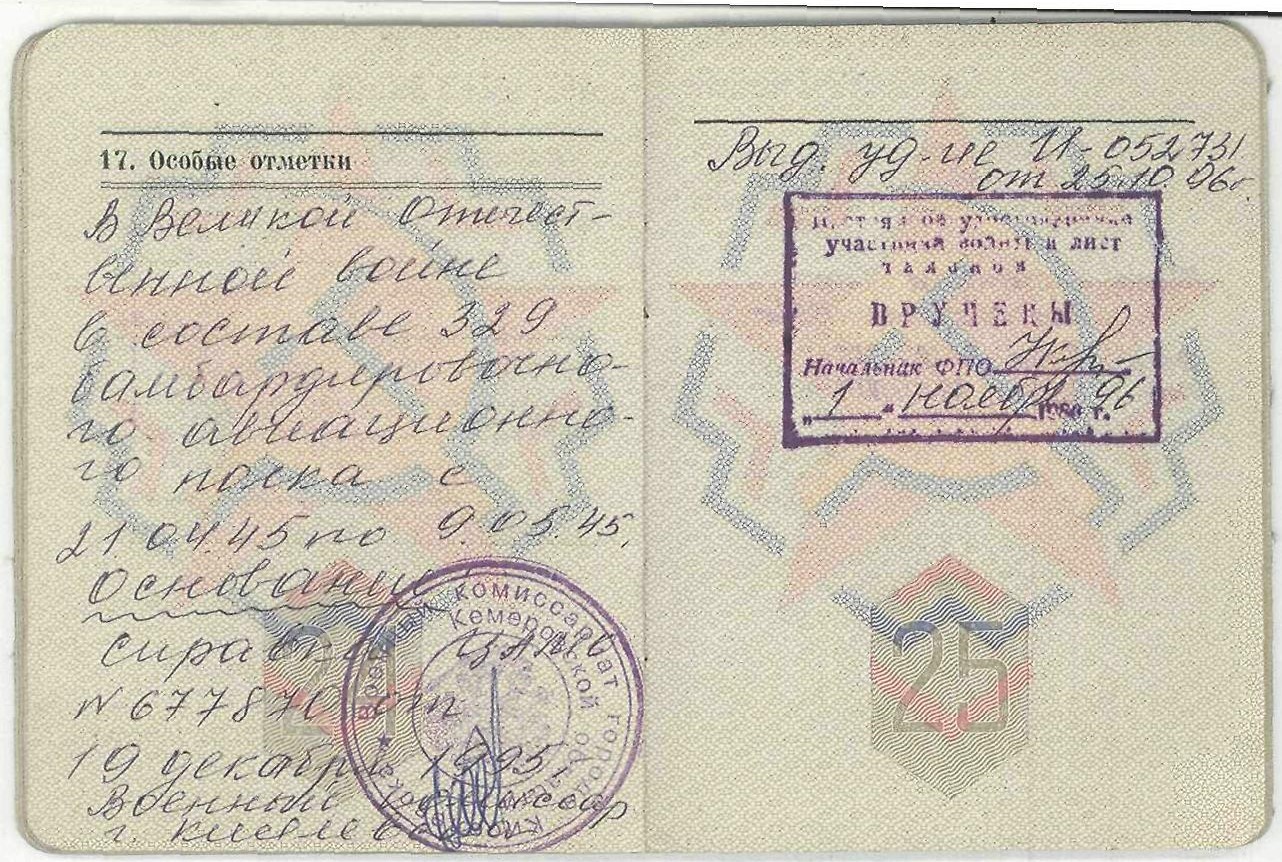 17. Особые отметки
В Великой Отечест-
венной войне
в составе 329
бамбардировочно-
го авиационно-
го полка с
21.04.45 по 9.05.45.
Основание
справка ЦАМО
N 677870 от
19 декабря 1995,
Военный комиссар
г. Киселевска
Военный комиссариат города Киселевска
Кемеровской области
24
Выд. уд-ие И-052731
от 25.10.96г
удостоверения
участника войны и лист
талонов
ВРУЧЕНЫ
Начальник ФПО
„ 1 “ ноября 96 г.
25